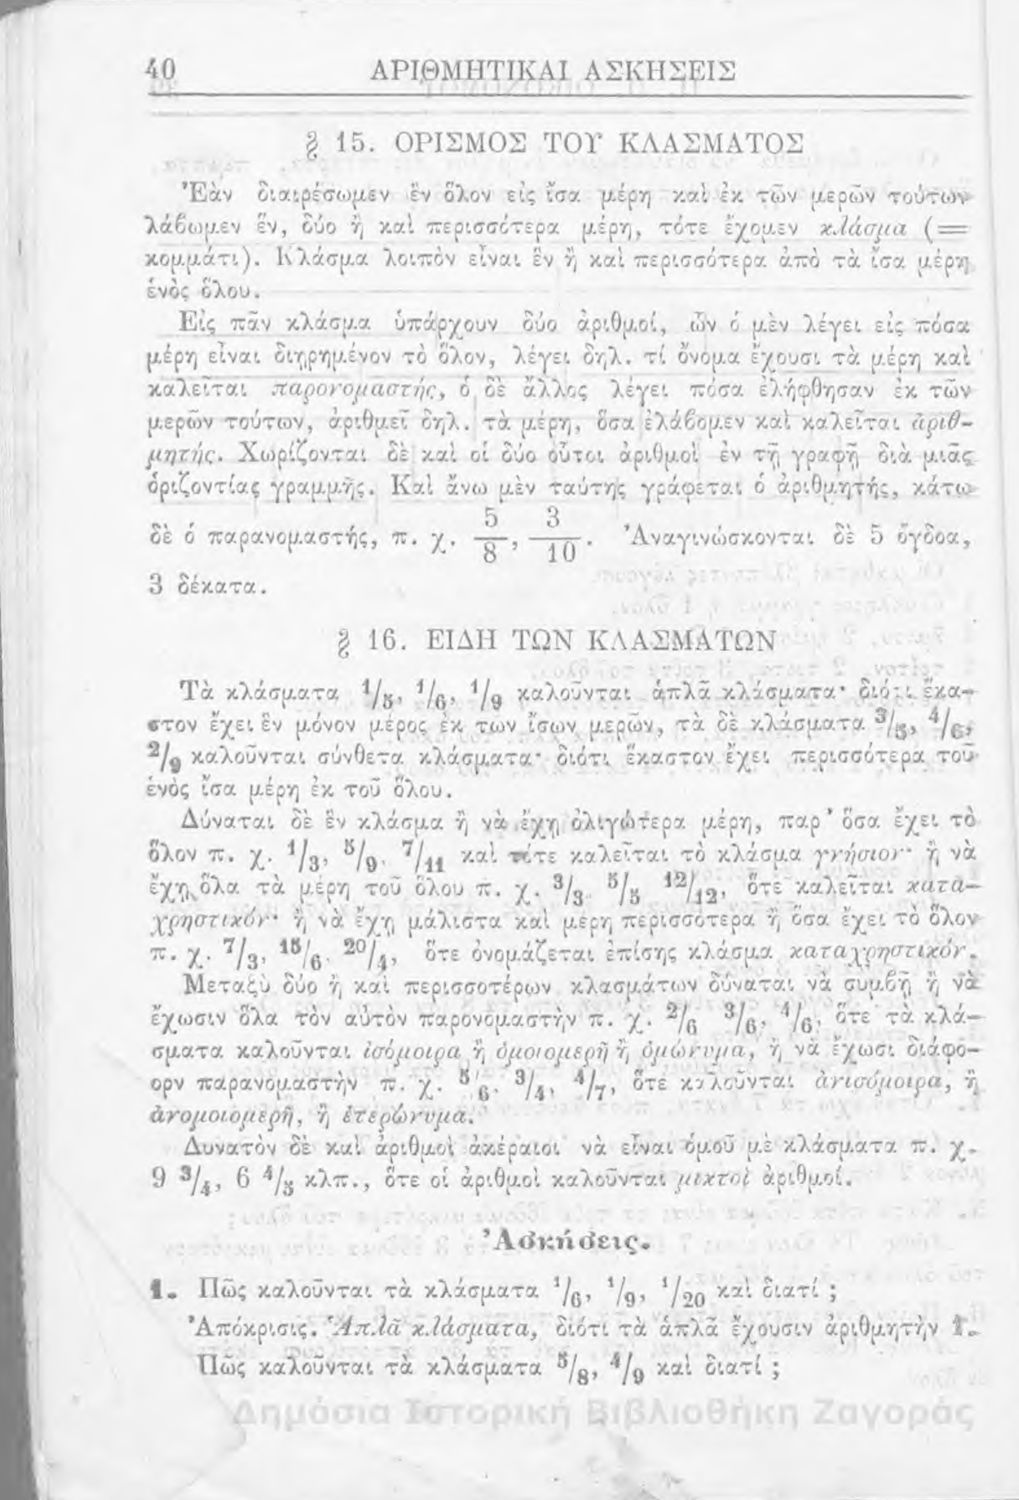 40 ΑΡΙΘΜΗΤΙΚΑΙ ΑΣΚΗΣΕΙΣ
§ 15. ΟΡΙΣΜΟΣ ΤΟΥ ΚΛΑΣΜΑΤΟΣ
Ἐὰν διαιρέσωμεν ἓν ὅλον εἰς ἴσα μέρη καὶ ἐκ τῶν μερῶν τούτων
λάβωμεν ἕν, δύο ἢ καὶ περισσότερα μέρη, τότε ἔχομεν κλάσμα (=
κομμάτι). Κλάσμα λοιπὸν εἶναι ἓν ἢ καὶ περισσότερα ἀπὸ τὰ ἴσα μέρη
ἑνὸς ὅλου.
Εἰς πᾶν κλάσμα ὑπάρχουν δύο ἀριθμοί, ὧν ὁ μὲν λέγει εἰς πόσα
μέρη εἶναι διῃρημένον τὸ ὅλον, λέγει δηλ. τί ὄνομα ἔχουσι τὰ μέρη καὶ
καλεῖται παρονομαστής, ὁ δὲ ἄλλος λέγει πόσα ἐλήφθησαν ἐκ τῶν
μερῶν τούτων, ἀριθμεῖ δηλ. τὰ μέρη, ὅσα ἐλάβομεν καὶ καλεῖται ἀριθ-
μητής. Χωρίζονται δὲ καὶ οἱ δύο οὗτοι ἀριθμοὶ ἐν τῇ γραφῇ διὰ μιᾶς
ὁριζοντίας γραμμῆς. Καὶ ἄνω μὲν ταύτης γράφεται ὁ ἀριθμητής, κάτω
δὲ ὁ παρανομαστής, π. χ. 5/8, 3/10. Ἀναγινώσκονται δὲ 5 ὄγδοα,
3 δέκατα.
§ 16. ΕΙΔΗ ΤΩΝ ΚΛΑΣΜΑΤΩΝ
Τὰ κλάσματα 1/5, 1/6, 1/9 καλοῦνται ἁπλᾶ κλάσματα· διότι ἕκα-
στον ἔχει ἓν μόνον μέρος ἐκ των ἴσων μερῶν, τὰ δὲ κλάσματα 3/5, 4/6,
2/9 καλοῦνται σύνθετα κλάσματα· διότι ἕκαστον ἔχει περισσότερα τοῦ
ἑνὸς ἴσα μέρη ἐκ τοῦ ὅλου.
Δύναται δὲ ἓν κλάσμα ἢ νὰ ἔχῃ ὀλιγώτερα μέρη, παρ' ὅσα ἔχει τὸ
ὅλον π. χ. 1/3, 5/9, 7/11 καὶ τότε καλεῖται τὸ κλάσμα γνήσιον· ἢ νὰ
ἔχῃ ὅλα τὰ μέρη τοῦ ὅλου π. χ. 3/3 5/5 12/12, ὅτε καλεῖται κατα-
χρηστικόν· ἢ νὰ ἔχῃ μάλιστα καὶ μέρη περισσότερα ἢ ὅσα ἔχει τὸ ὅλον
π. χ. 7/3, 15/6, 20/4, ὅτε ὀνομάζεται ἐπίσης κλάσμα καταχρηστικόν.
Μεταξὺ δύο ἢ καὶ περισσοτέρων κλασμάτων δύναται νὰ συμβῇ ἢ νὰ
ἔχωσιν ὅλα τὸν αὐτὸν παρονομαστὴν π. χ. 2/6 3/6, 4/6, ὅτε τὰ κλά-
σματα καλοῦνται ἰσόμοιρα ἢ ὁμοιομερῆ ἢ ὁμώνυμα, ἢ νὰ ἔχωσι διάφο-
ρον παρανομαστὴν π. χ. 5/6, 3/4, 4/7, ὅτε καλοῦνται ἀνισόμοιρα, ἢ
ἀνομοιομερῆ, ἢ ἑτερώνυμα.
Δυνατὸν δὲ καὶ ἀριθμοὶ ἀκέραιοι νὰ εἶναι ὁμοῦ μὲ κλάσματα π. χ.
9 3/4, 6 4/5 κλπ., ὅτε οἱ ἀριθμοὶ καλοῦνται μικτοὶ ἀριθμοί.
Ἀσκήσεις.
1. Πῶς καλοῦνται τὰ κλάσματα 1/6, 1/9, 1/20 καὶ διατί ;
Ἀπόκρισις. Ἁπλᾶ κλάσματα, διότι τὰ ἁπλᾶ ἔχουσιν ἀριθμητὴν 1.
Πῶς καλοῦνται τὰ κλάσματα 5/8, 4/9 καὶ διατί ;
Δημόσια Ιστορική Βιβλιοθήκη Ζαγοράς